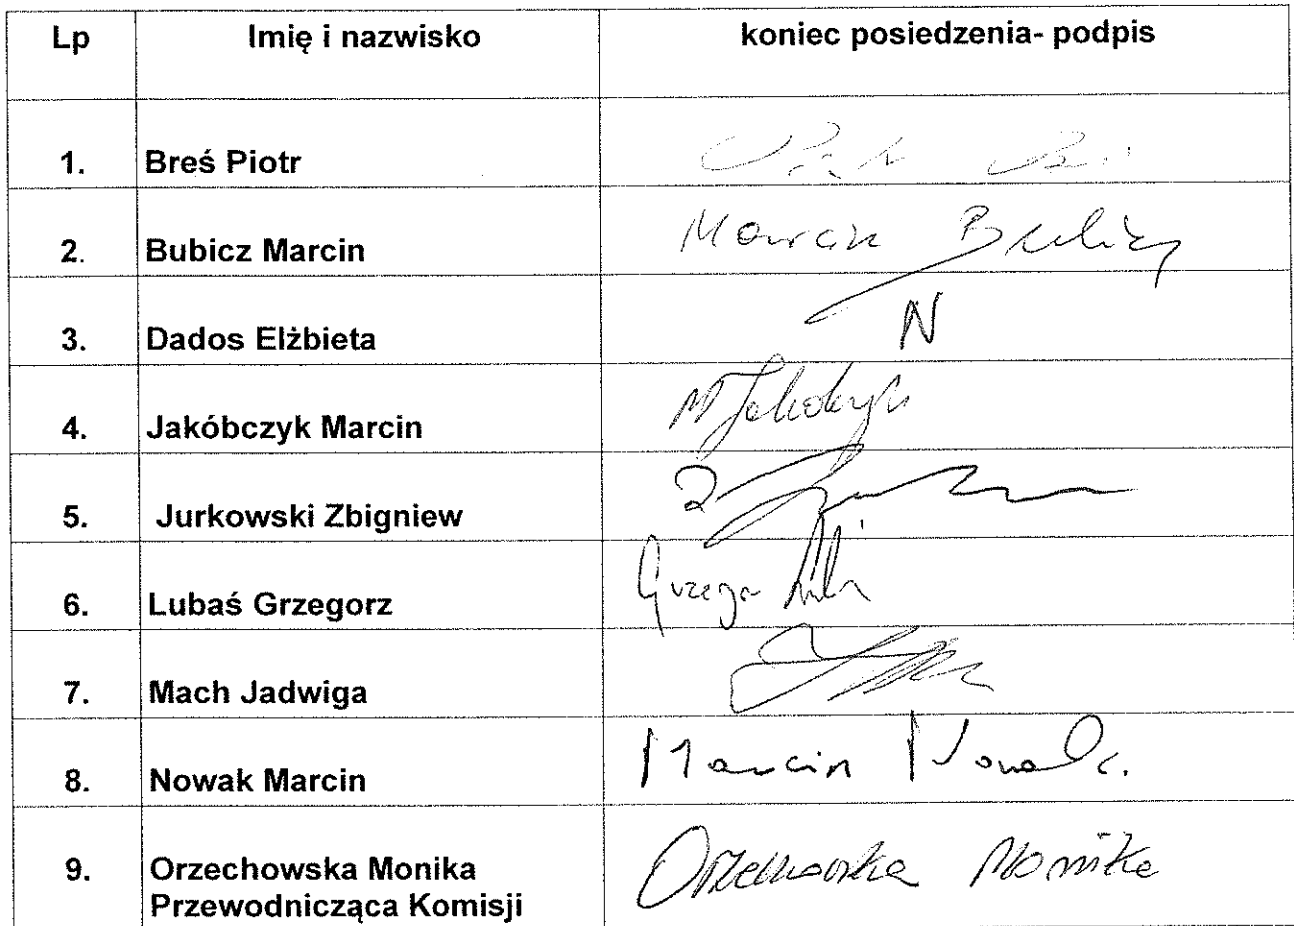 Lp Imię i nazwisko koniec posiedzenia- podpis
1. Breś Piotr
2. Bubicz Marcin Marcin Bubicz
3. Dados Elżbieta N
4. Jakóbczyk Marcin M Jakóbczyk
5. Jurkowski Zbigniew
6. Lubaś Grzegorz Grzegorz
7. Mach Jadwiga
8. Nowak Marcin Marcin Nowak.
9. Orzechowska Monika Orzechowska Monika
Przewodnicząca Komisji